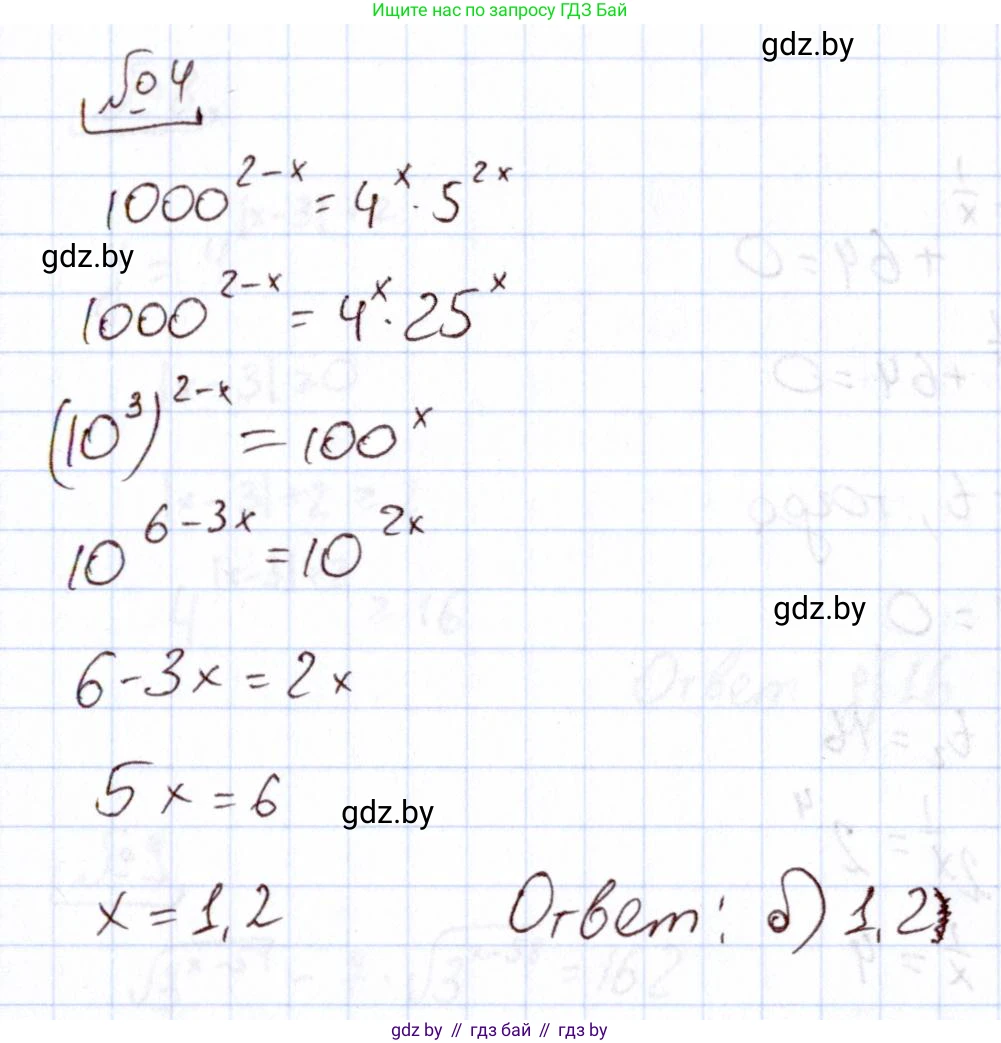 Ищите нас по запросу ГДЗ Бай
gdz.by
№ 4
1000^{2-x} = 4^x · 5^{2x}
gdz.by
1000^{2-x} = 4^x · 25^x
(10^3)^{2-x} = 100^x
10^{6-3x} = 10^{2x}
gdz.by
6-3x = 2x
5x = 6
gdz.by
x = 1,2
Ответ: б) 1,2
gdz by // гдз бай // гдз by